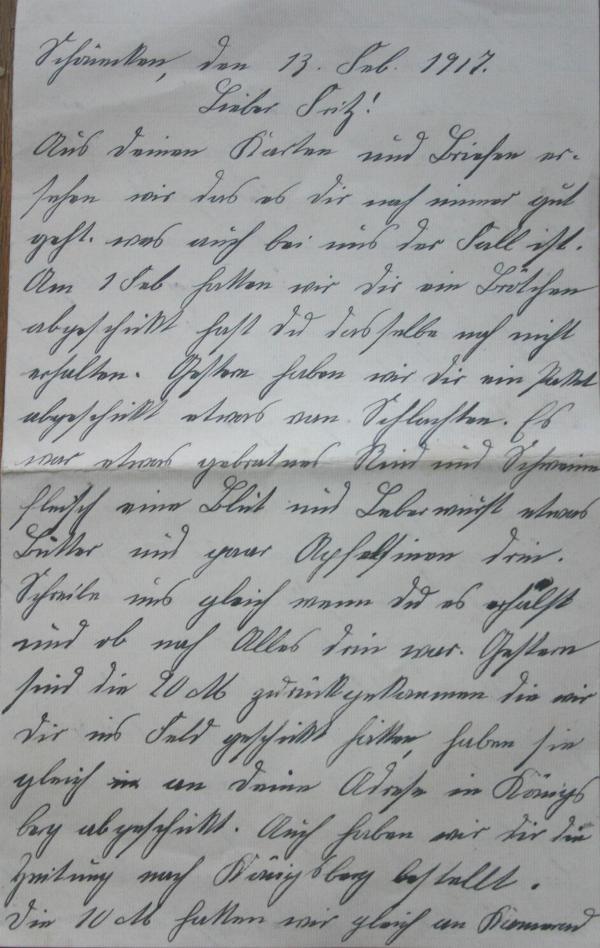 Schönecken, den 13. Feb. 1917.
Lieber Fritz!
Aus deinen Karten und Briefen er-
sehen wir das es dir noch immer gut
geht. was auch bei uns der Fall ist.
Am 1 Feb hatten wir dir ein Brötchen
abgeschickt hast du dasselbe noch nicht
erhalten. Gestern haben wir dir ein Paket
abgeschickt etwas vom Schlachten. Es
war etwas gebratnes Rind und Schweine
fleisch eine Blut und Leberwurst etwas
Butter und paar Apfelsinen drin.
Schreibe uns gleich wenn du es erhälst
und ob noch Alles drin war. Gestern
sind die 20 M zurückgekommen die wir
dir ins Feld geschickt hatten, haben sie
gleich an deine Adresse in Königs
berg abgeschickt. Auch haben wir dir die
Zeitung nach Königsberg bestellt.
Die 10 M hatten wir gleich an Kamerad